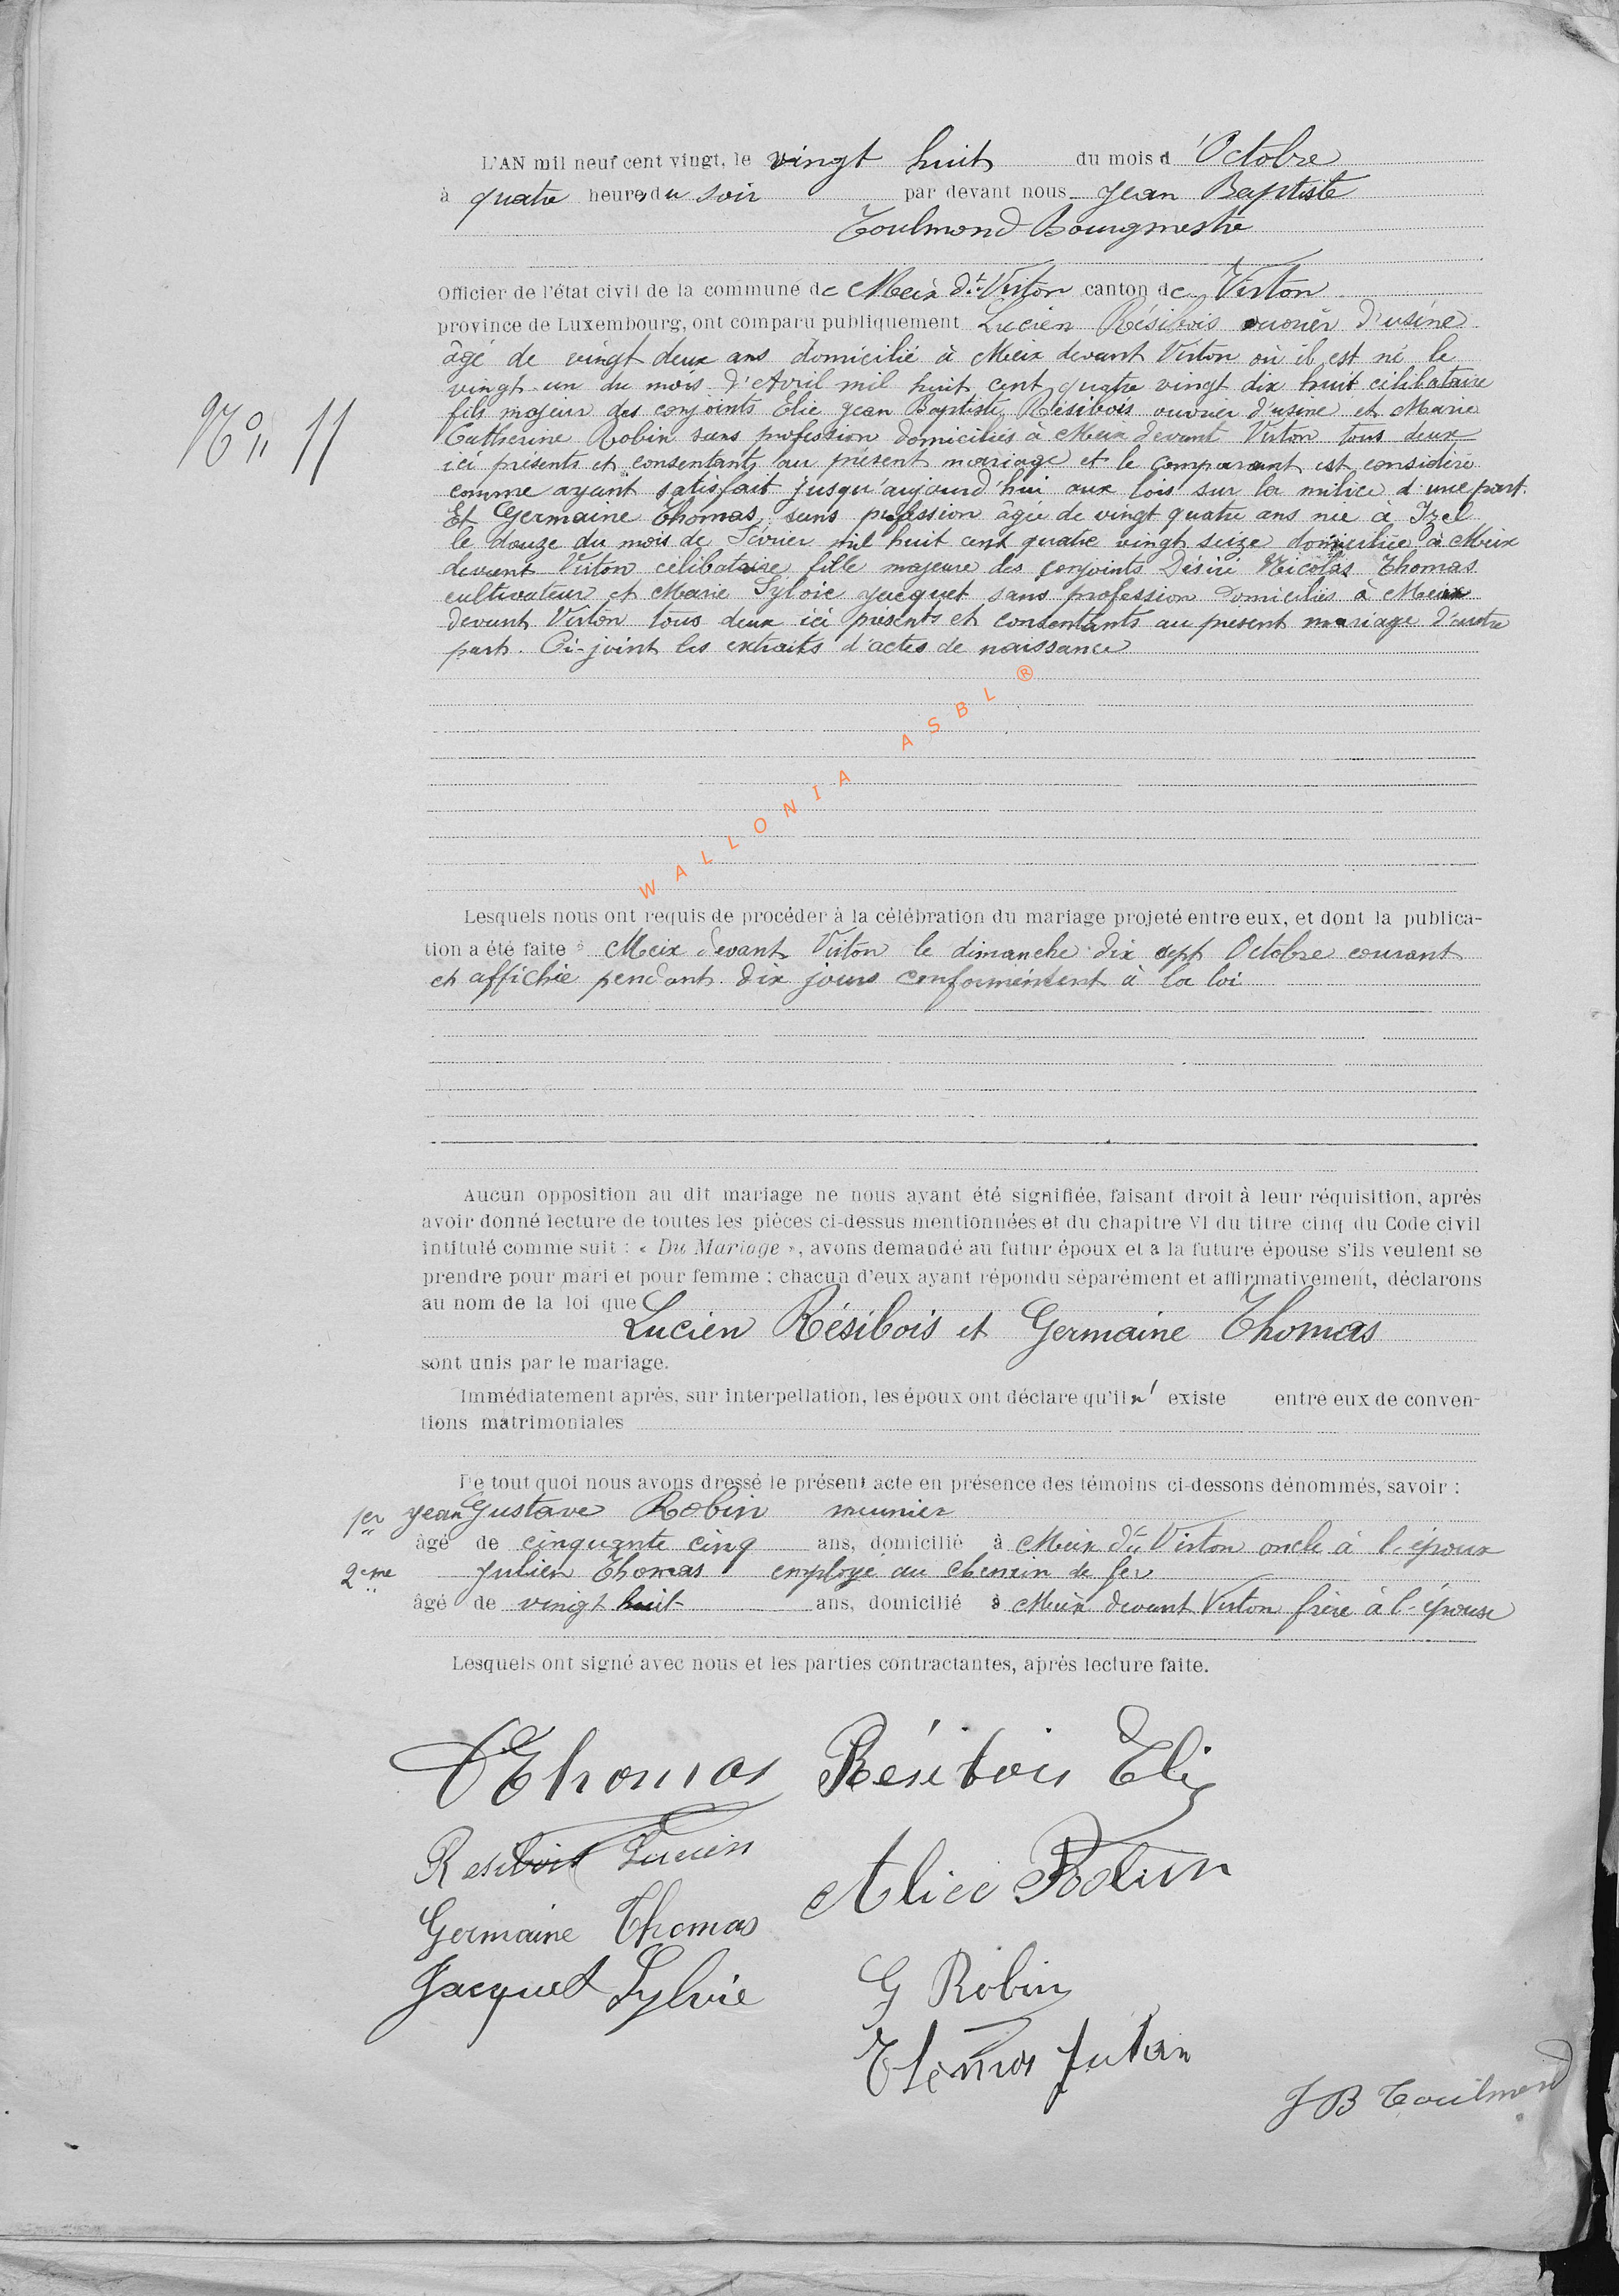 L'AN mil neuf cent vingt, le vingt huit du mois d'Octobre
à quatre heures du soir par devant nous Jean Baptiste
Toulmond Bourgmestre
Officier de l'état civil de la commune de Meix dt Virton canton de Virton
province de Luxembourg, ont comparu publiquement Lucien Résibois ouvrier d'usine
âgé de vingt deux ans domicilié à Meix devant Virton où il est né le
vingt-un du mois d'Avril mil huit cent quatre vingt dix huit célibataire
fils majeur des conjoints Elie Jean Baptiste Résibois ouvrier d'usine et Marie
Catherine Robin sans profession domiciliés à Meix devant Virton tous deux
ici présents et consentants au présent mariage et le comparant est considéré
comme ayant satisfait jusqu'aujourd'hui aux lois sur la milice d'une part.
Et Germaine Thomas, sans profession âgée de vingt quatre ans née à Izel
le douze du mois de Février mil huit cent quatre vingt seize domiciliée à Meix
devant Virton célibataire fille majeure des conjoints Désiré Nicolas Thomas
cultivateur et Marie Sylvie Jacquet sans profession domiciliés à Meix
devant Virton tous deux ici présents et consentants au présent mariage d'autre
part. Ci-joint les extraits d'actes de naissance
WALLONIA ASBL ®
N° 11
Lesquels nous ont requis de procéder à la célébration du mariage projeté entre eux, et dont la publica-
tion a été faite à Meix devant Virton le dimanche dix sept Octobre courant
et affichée pendant dix jours conformément à la loi
Aucun opposition au dit mariage ne nous ayant été signifiée, faisant droit à leur réquisition, après
avoir donné lecture de toutes les pièces ci-dessus mentionnées et du chapitre VI du titre cinq du Code civil
intitulé comme suit : « Du Mariage », avons demandé au futur époux et à la future épouse s'ils veulent se
prendre pour mari et pour femme ; chacun d'eux ayant répondu séparément et affirmativement, déclarons
au nom de la loi que
Lucien Résibois et Germaine Thomas
sont unis par le mariage.
Immédiatement après, sur interpellation, les époux ont déclare qu'il n' existe entre eux de conven-
tions matrimoniales
De tout quoi nous avons dressé le présent acte en présence des témoins ci-dessons dénommés, savoir :
1er Jean Gustave Robin meunier
âgé de cinquante cinq ans, domicilié à Meix dt Virton oncle à l'époux
2eme Julien Thomas employé au chemin de fer
âgé de vingt huit ans, domicilié à Meix devant Virton frère à l'épouse
Lesquels ont signé avec nous et les parties contractantes, après lecture faite.
D Thomas Résibois Elie
Resibois Lucien
Alice Robin
Germaine Thomas
Jacquet Sylvie G Robin
Thomas Julien
JB Toulmond